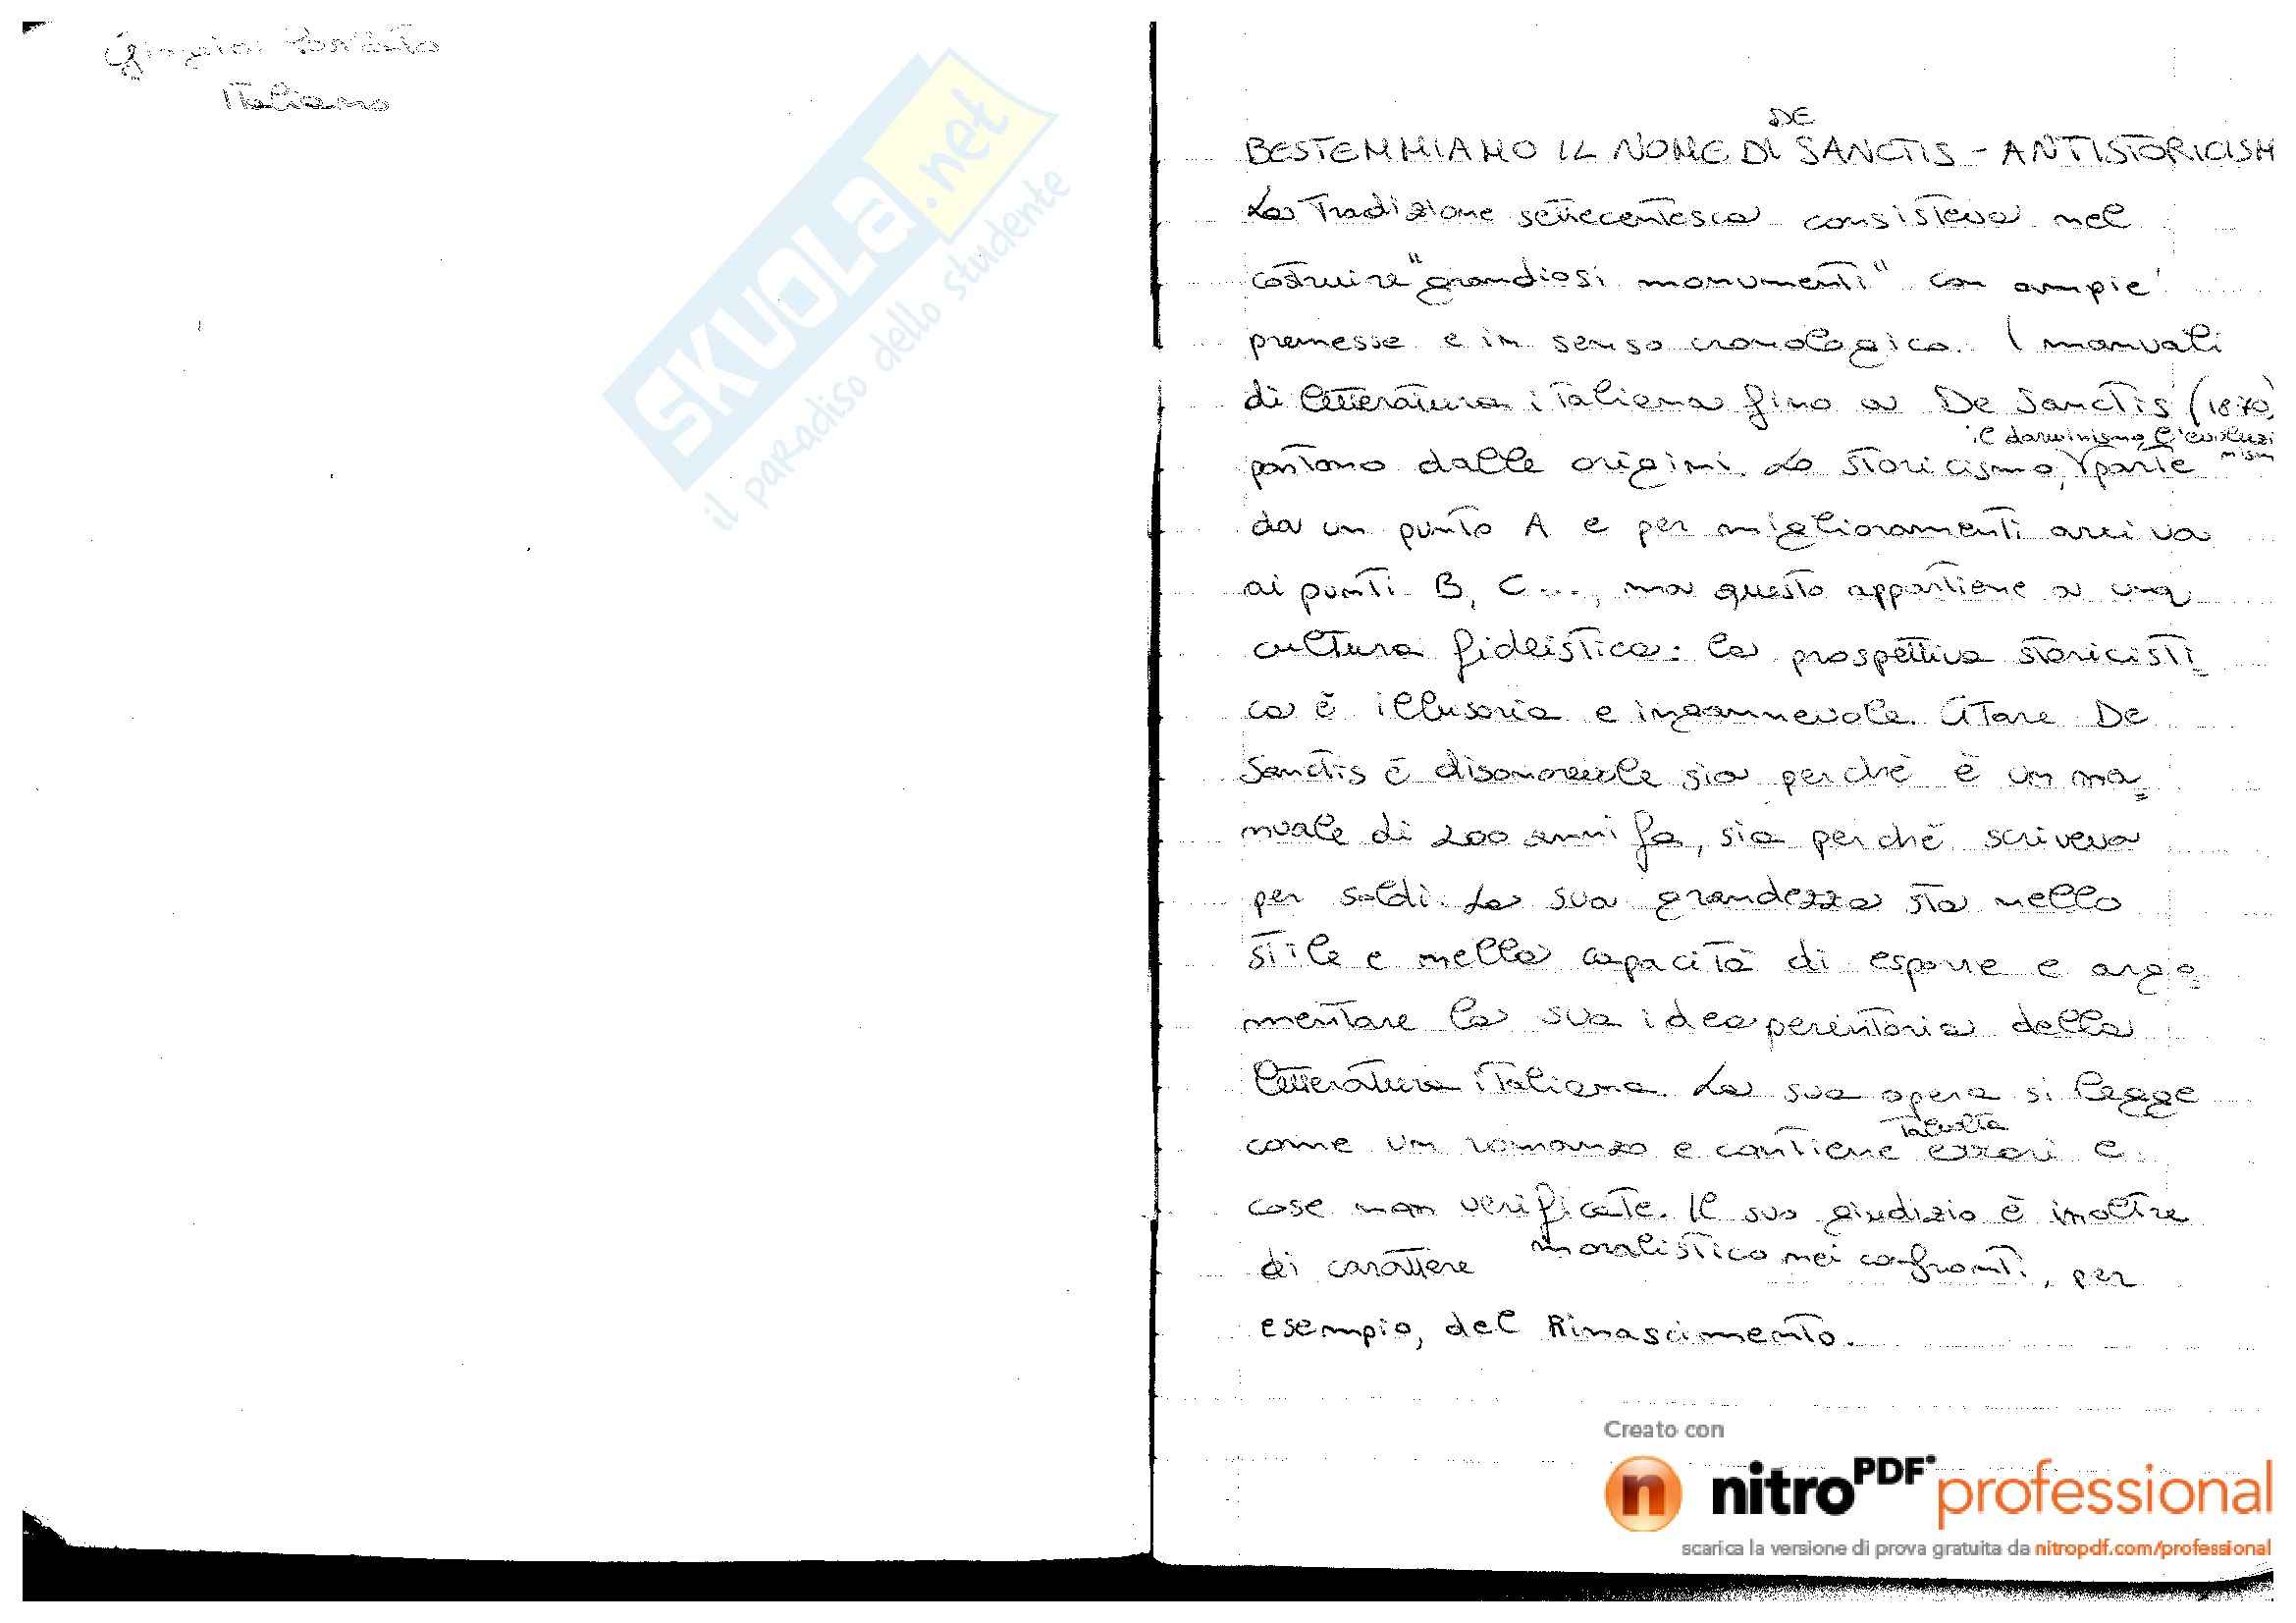 Italiano
SKUOLA.net
il paradiso dello studente
DE
BESTEMMIAMO IL NOME DI SANCTIS - ANTISTORICISM
La Tradizione settecentesca consisteva nel
costruire "grandiosi monumenti" con ampie
premesse e in senso cronologico. I manuali
di letteratura italiana fino a De Sanctis (1870)
il darwinismo, l'evoluzi
nism
partono dalle origini. Lo storicismo, parte
da un punto A e per miglioramenti arriva
ai punti B, C..., ma questo appartiene a una
cultura fideistica: la prospettiva storicisti=
ca è illusoria e ingannevole. Citare De
Sanctis è disonorevole sia perché è un ma=
nuale di 200 anni fa, sia perché scriveva
per soldi. La sua grandezza sta nello
stile e nella capacità di esporre e argo=
mentare la sua idea perentoria della
letteratura italiana. La sua opera si legge
talvolta
come un romanzo e contiene errori e
cose non verificate. Il suo giudizio è inoltre
di carattere moralistico nei confronti, per
esempio, del Rinascimento.
Creato con
nitroPDF professional
scarica la versione di prova gratuita da nitropdf.com/professional